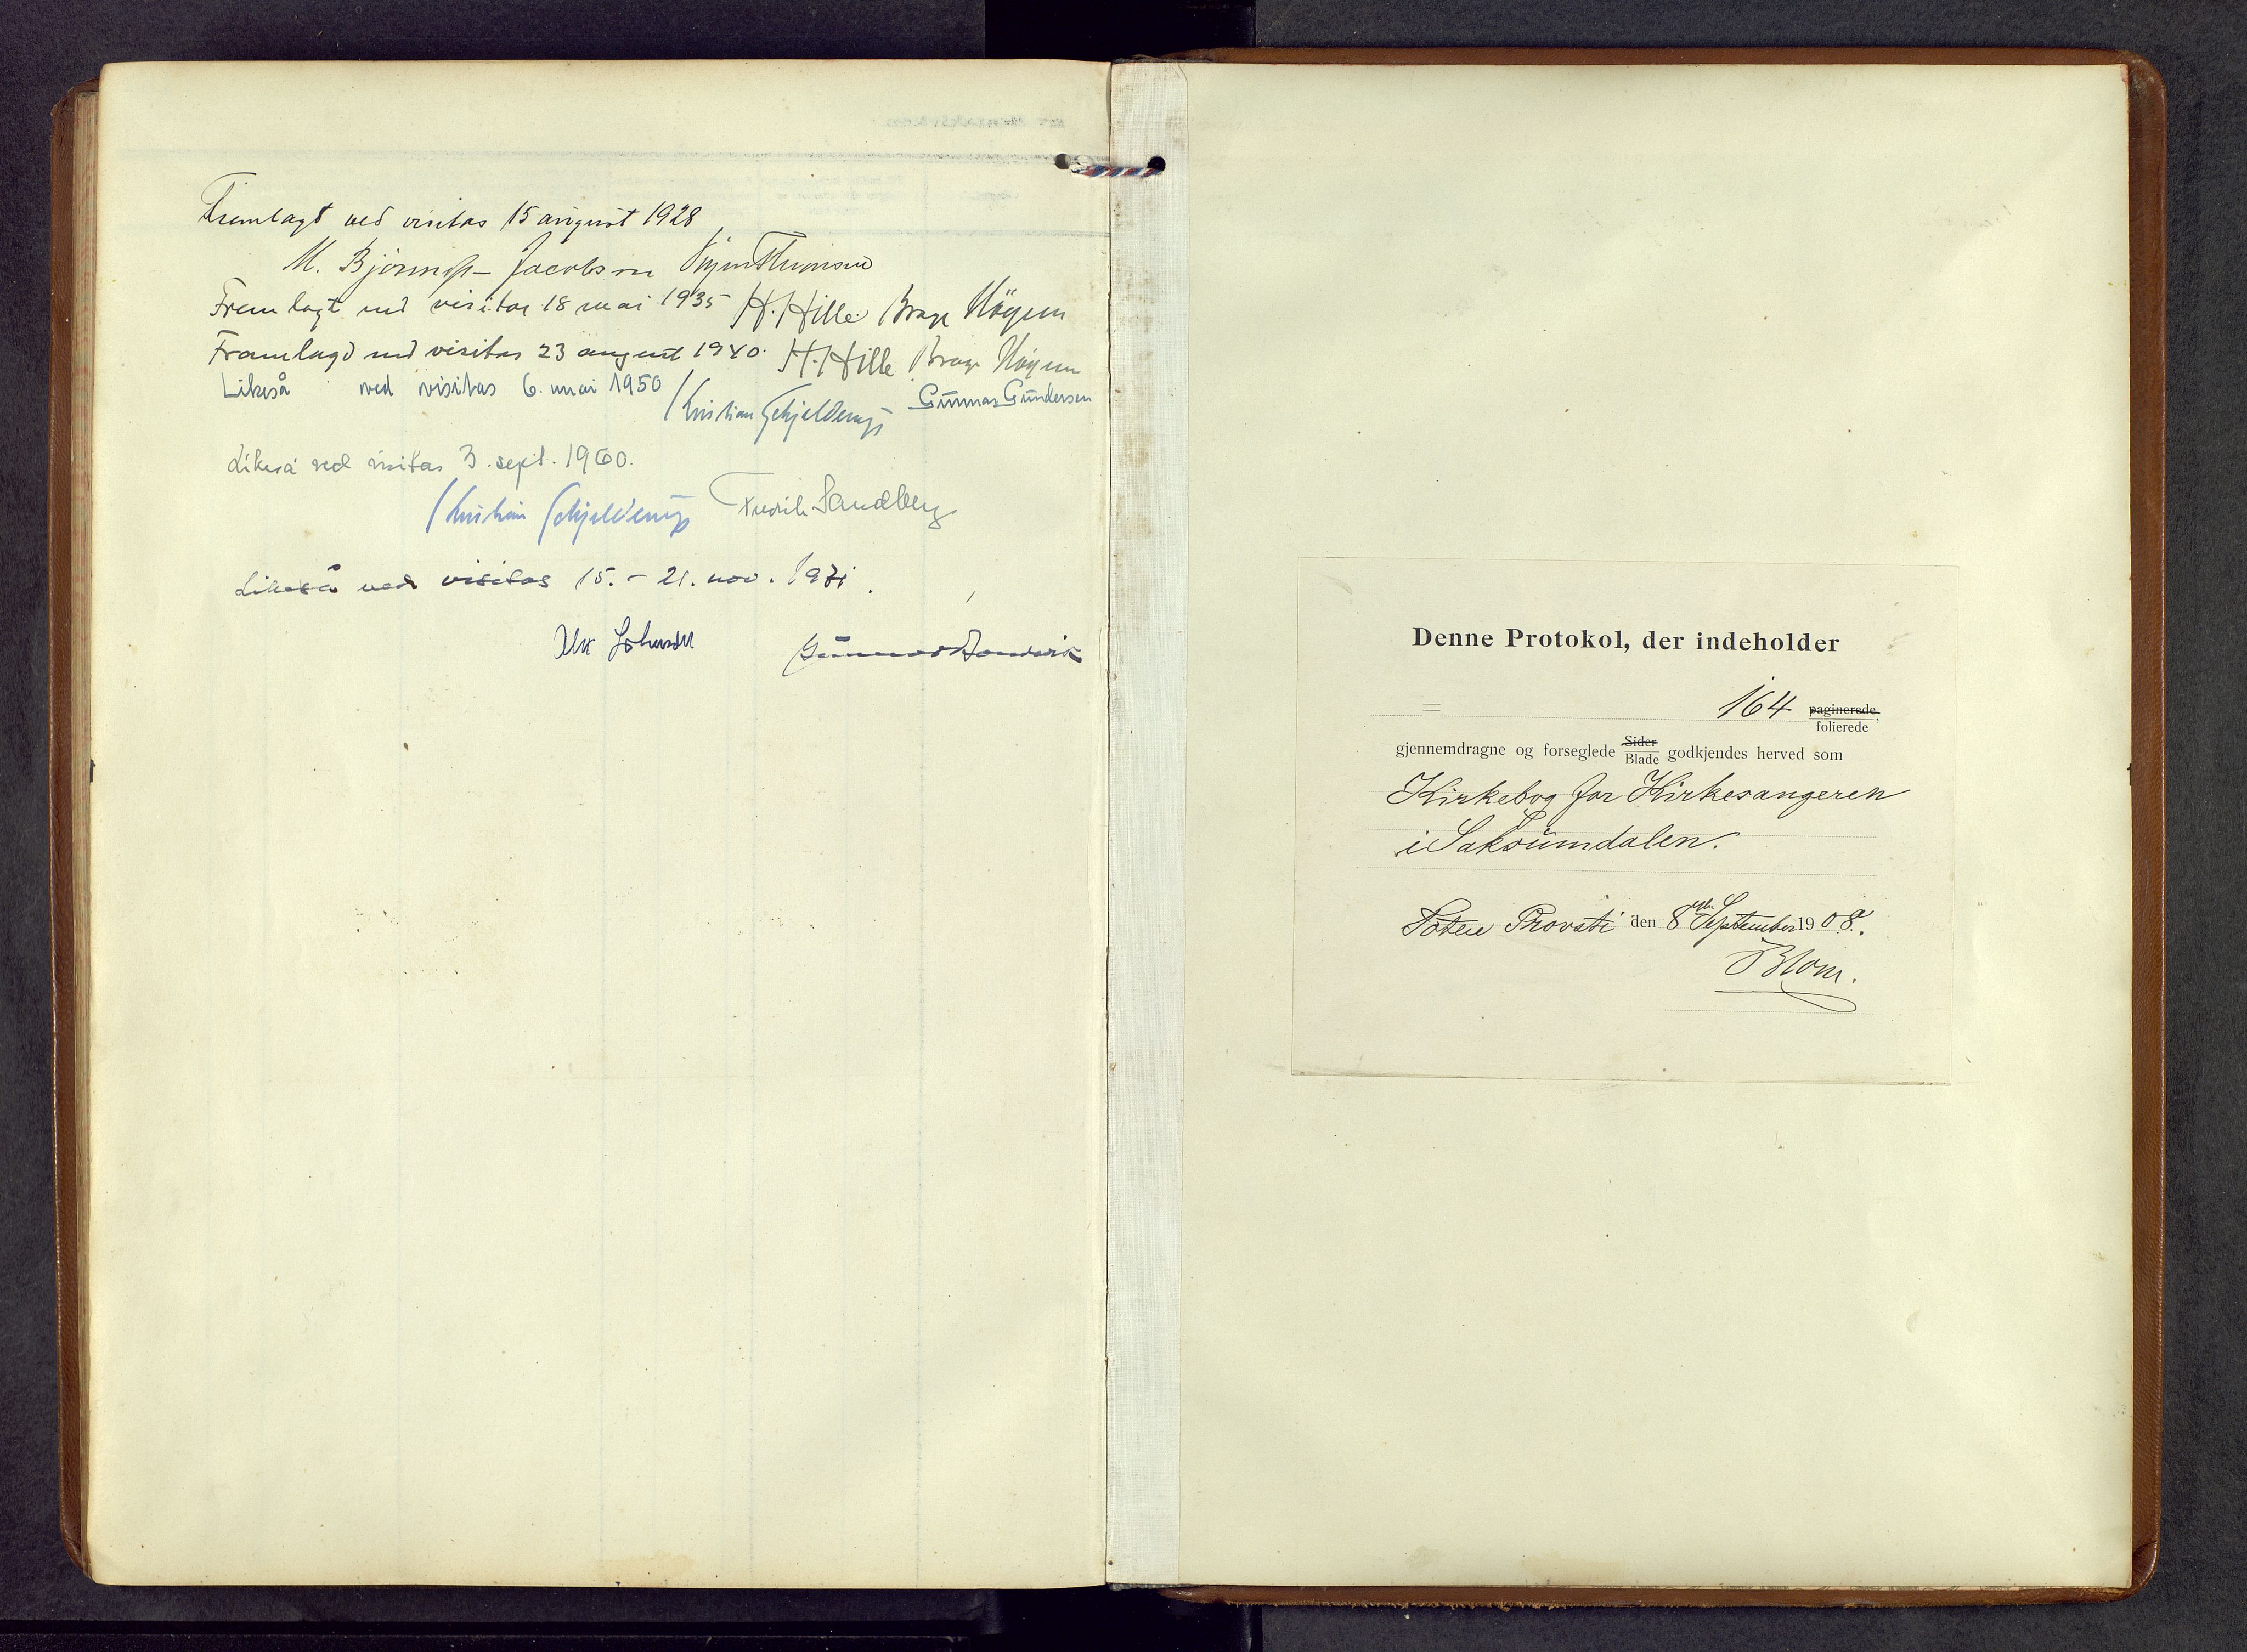 Fremlagt ved visitas 15 august 1928
M. Bjørnnes-Jacobsen Thomsen
Fremlagt ved visitas 18 mai 1935 H. Hille Brage Höyem
Framlagd ved visitas 23 august 1940. H. Hille Brage Höyem
Likeså ved visitas 6. mai 1950 Kristian Schjelderup Gunnar Gundersen
Likeså ved visitas 3. sept. 1960.
Kristian Schjelderup Fredrik Sandberg
Likeså ved visitas 15. - 21. nov. 1971.
Alex Johnson Gunnar
Denne Protokol, der indeholder
= 164 paginerede, folierede
gjennemdragne og forseglede Sider Blade godkjendes herved som
Kirkebog for Kirkesangeren
i Saksumdalen.
Toten Provsti den 8de September 1908.
Blom.